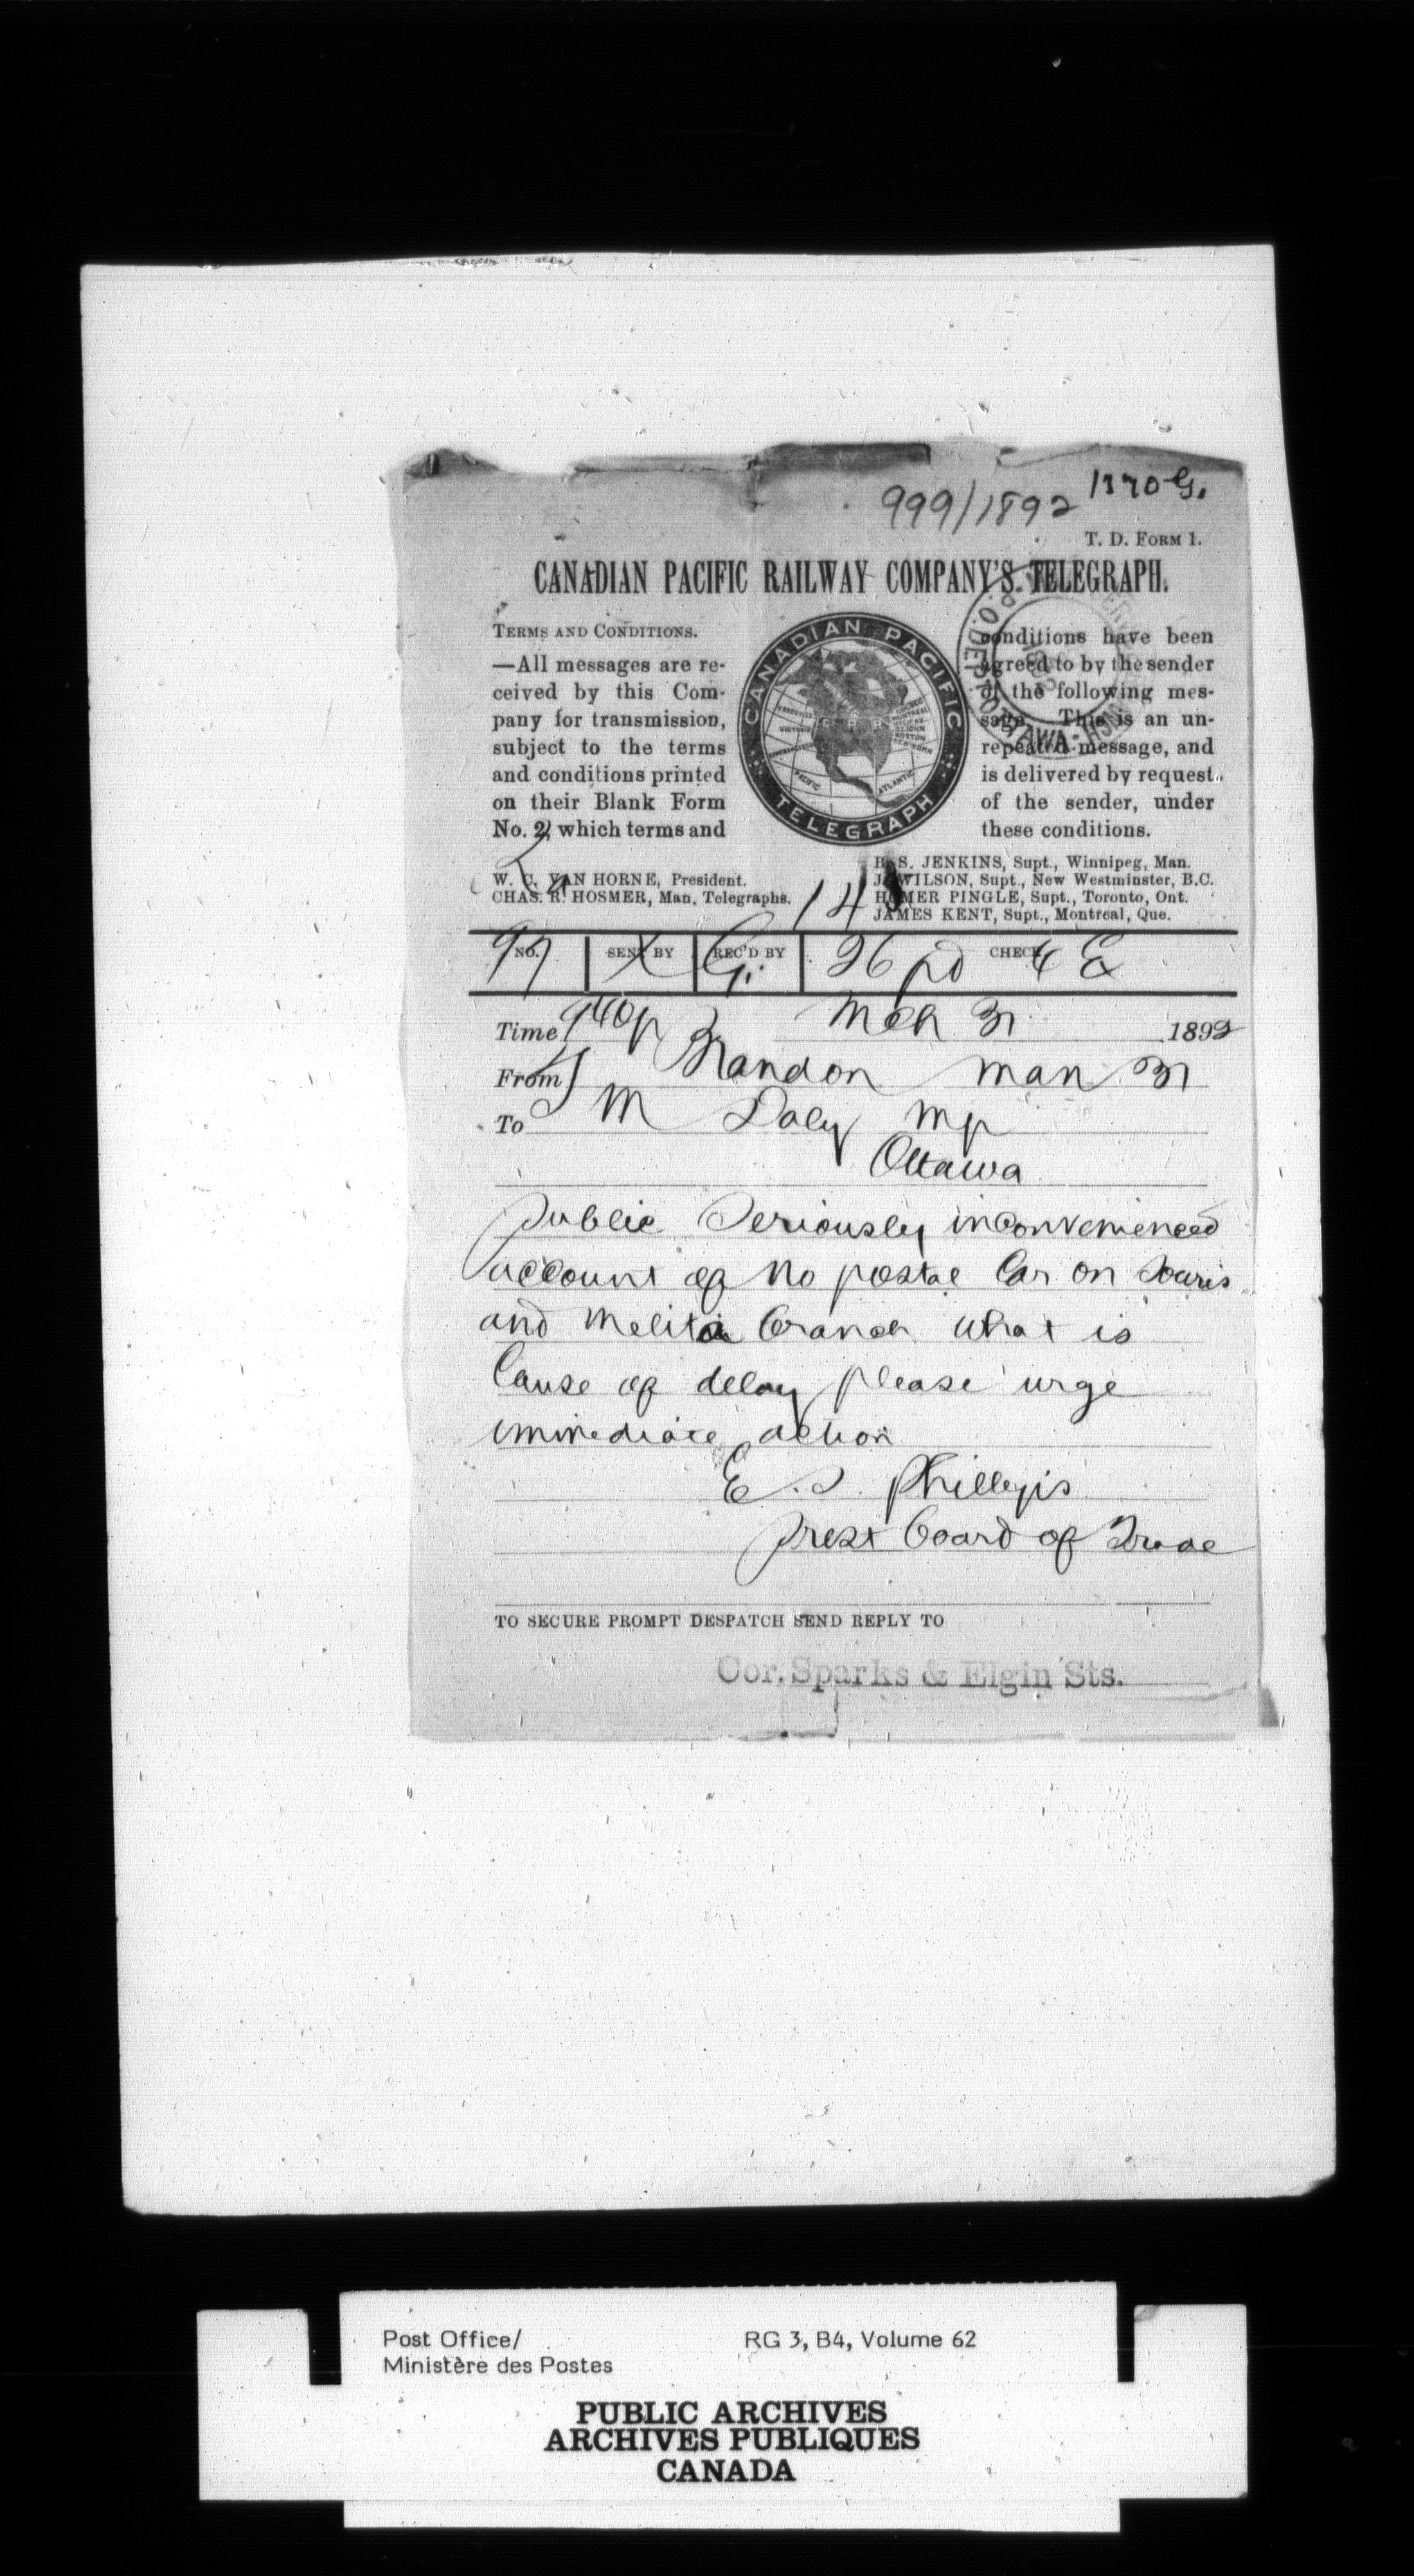 999/1892 1370 G.
T. D. FORM 1.
CANADIAN PACIFIC RAILWAY COMPANY'S TELEGRAPH.
TERMS AND CONDITIONS.
—All messages are re-
ceived by this Com-
pany for transmission,
subject to the terms
and conditions printed
on their Blank Form
No. 2, which terms and
CANADIAN PACIFIC
TELEGRAPH
conditions have been
agreed to by the sender
of the following mes-
sage. This is an un-
repeated message, and
is delivered by request
of the sender, under
these conditions.
W. C. VAN HORNE, President.
CHAS. R. HOSMER, Man. Telegraphs.
B. S. JENKINS, Supt., Winnipeg, Man.
J. WILSON, Supt., New Westminster, B.C.
HOMER PINGLE, Supt., Toronto, Ont.
JAMES KENT, Supt., Montreal, Que.
NO. 97 SENT BY X REC'D BY G. 26 pd CHECK
Time 940p Mch 31 1892
From Brandon Man 31
To T M Daly MP
Ottawa
Public Seriously inconvenienced
account of no postal Car on Souris
and Melita branch what is
Cause of delay please urge
immediate action
E. S. Phillips
Prest board of Trade
TO SECURE PROMPT DESPATCH SEND REPLY TO
Cor. Sparks & Elgin Sts.
Post Office/
Ministère des Postes
RG 3, B4, Volume 62
PUBLIC ARCHIVES
ARCHIVES PUBLIQUES
CANADA